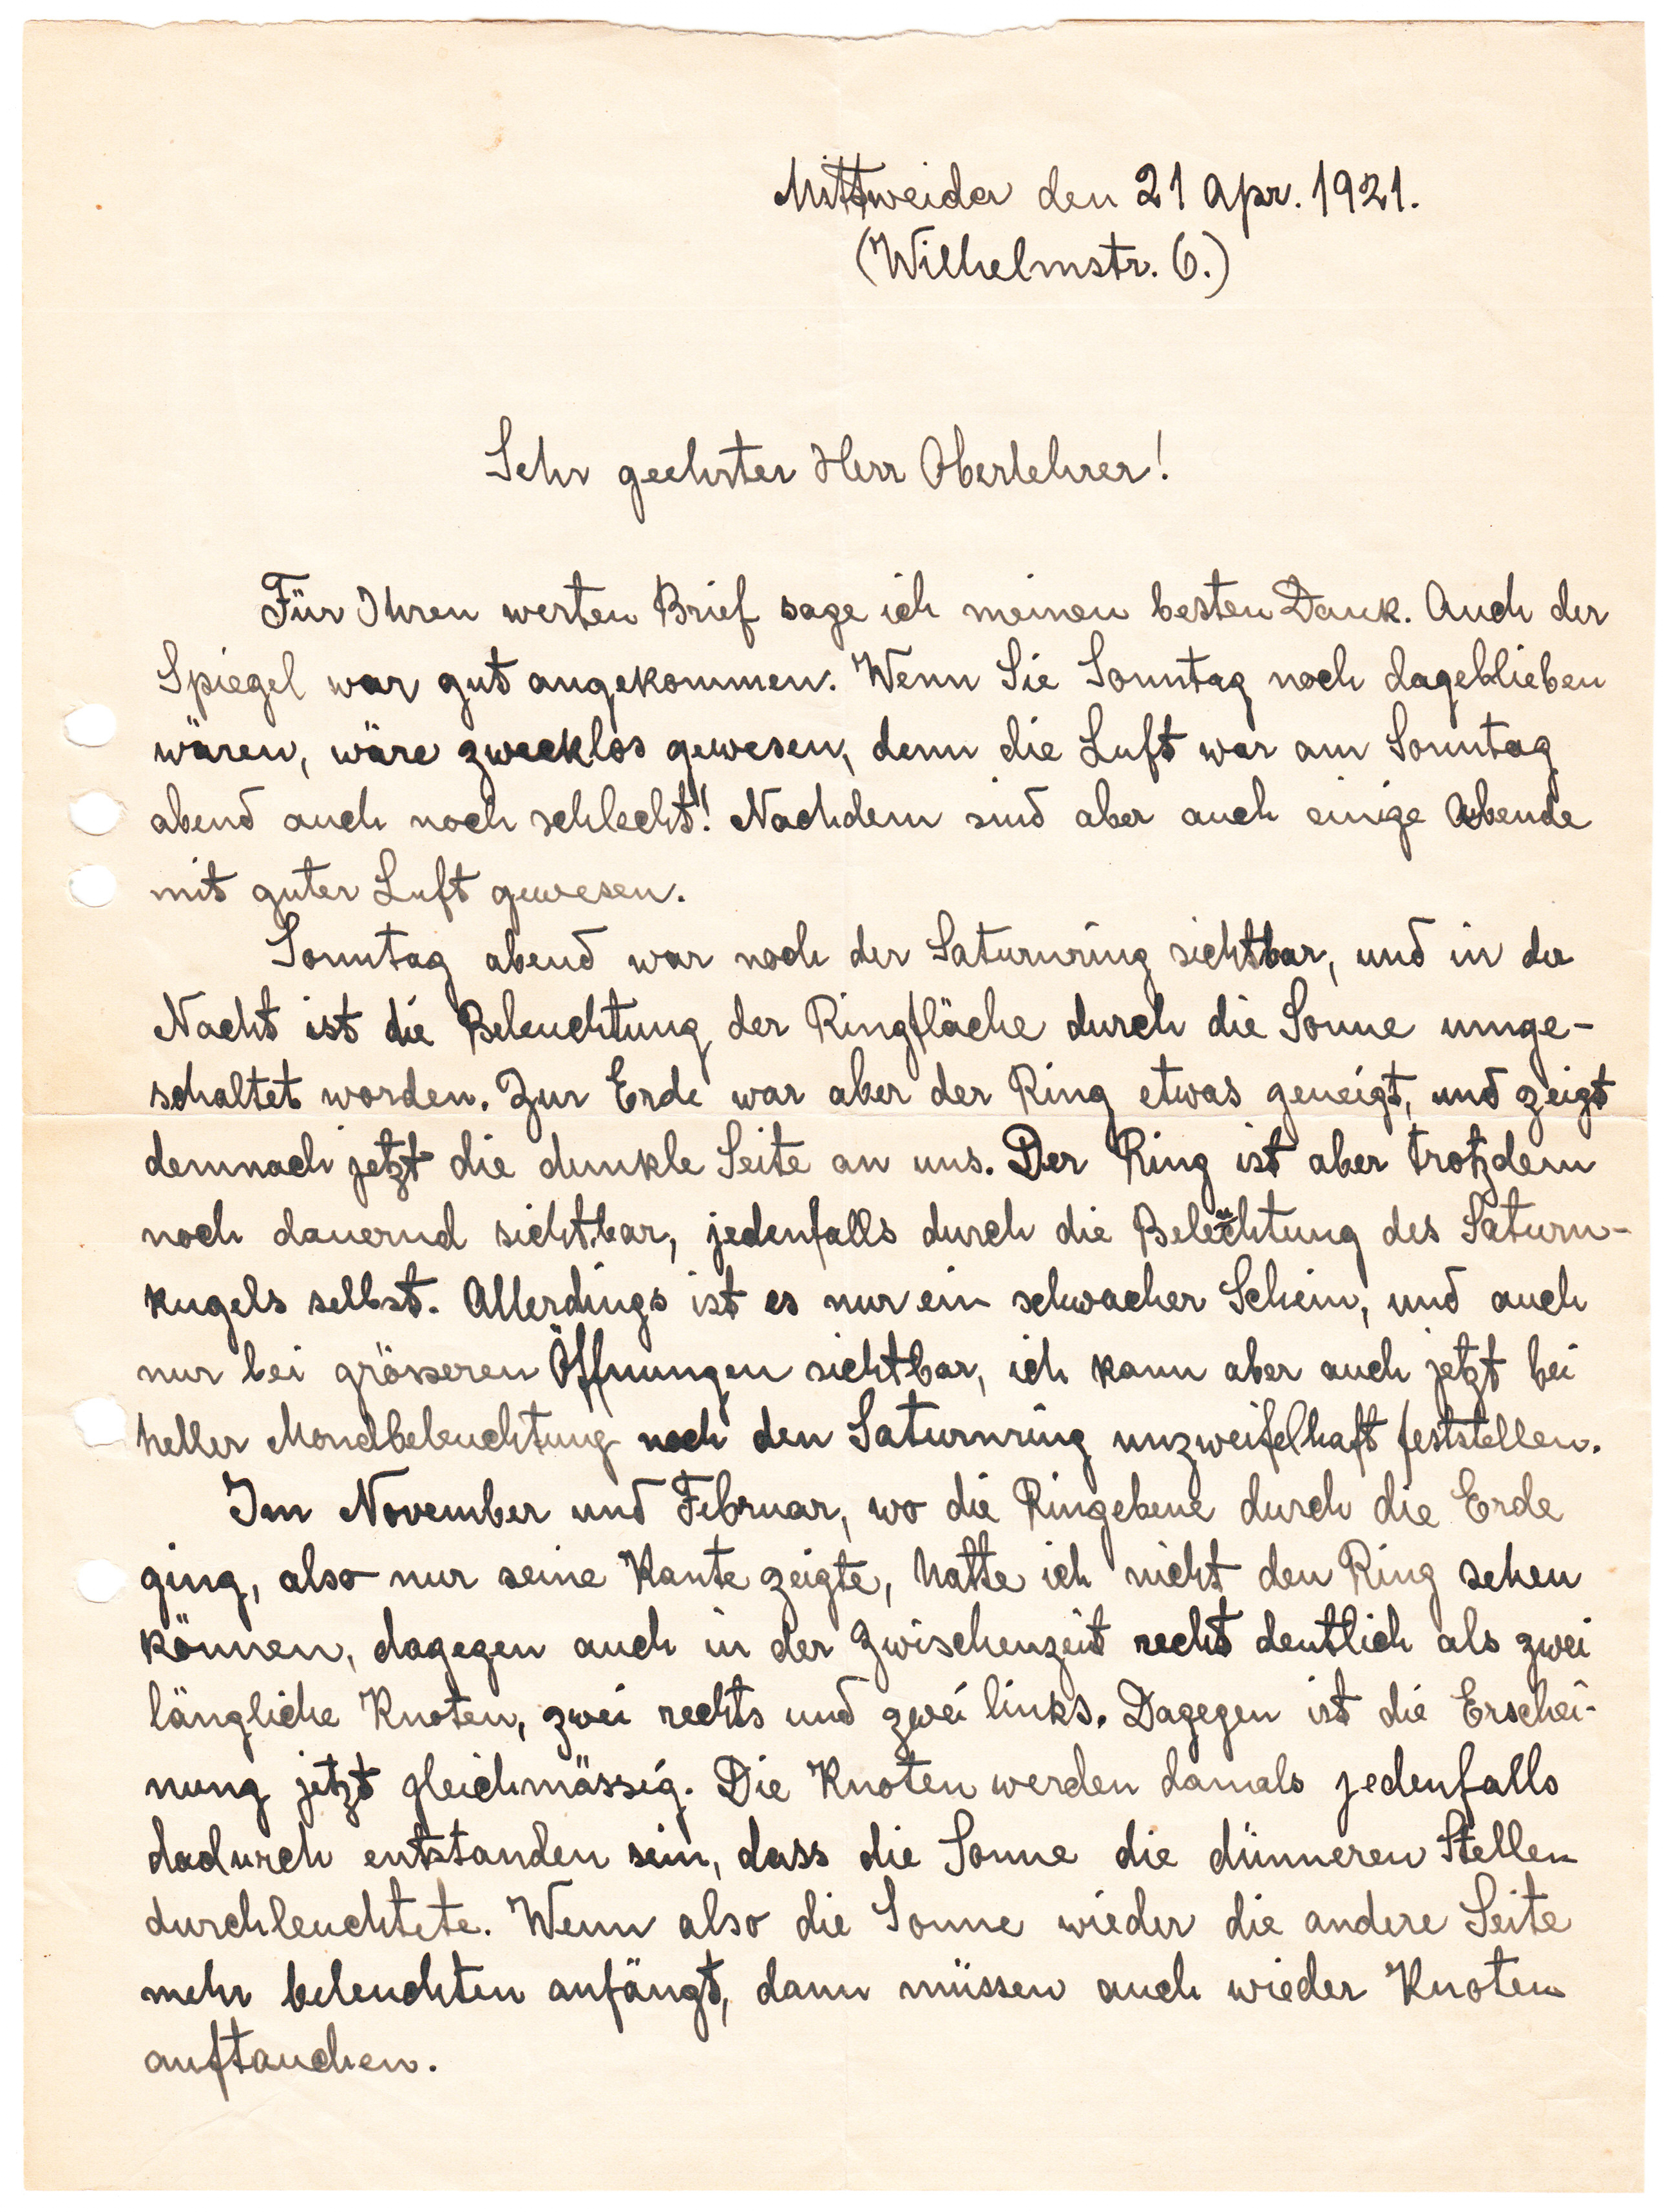 Mittweida den 21 Apr. 1921.
(Wilhelmstr. 6.)
Sehr geehrter Herr Oberlehrer!
Für Ihren werten Brief sage ich meinen besten Dank. Auch der
Spiegel war gut angekommen. Wenn Sie Sonntag noch dageblieben
wären, wäre zwecklos gewesen, denn die Luft war am Sonntag
abend auch noch schlecht! Nachdem sind aber auch einige Abende
mit guter Luft gewesen.
Sonntag abend war noch der Saturnring sichtbar, und in der
Nacht ist die Beleuchtung der Ringfläche durch die Sonne umge-
schaltet worden. Zur Erde war aber der Ring etwas geneigt, und zeigt
demnach jetzt die dunkle Seite an uns. Der Ring ist aber trotzdem
noch dauernd sichtbar, jedenfalls durch die Beleuchtung des Saturn-
kugels selbst. Allerdings ist es nur ein schwacher Schein, und auch
nur bei grösseren Öffnungen sichtbar, ich kann aber auch jetzt bei
heller Mondbeleuchtung noch den Saturnring unzweifelhaft feststellen.
Im November und Februar, wo die Ringebene durch die Erde
ging, also nur seine Kante zeigte, hatte ich nicht den Ring sehen
können, dagegen auch in der Zwischenzeit recht deutlich als zwei
längliche Knoten, zwei rechts und zwei links. Dagegen ist die Erschei-
nung jetzt gleichmässig. Die Knoten werden damals jedenfalls
dadurch entstanden sein, dass die Sonne die dünneren Stellen
durchleuchtete. Wenn also die Sonne wieder die andere Seite
mehr beleuchten anfängt, dann müssen auch wieder Knoten
auftauchen.